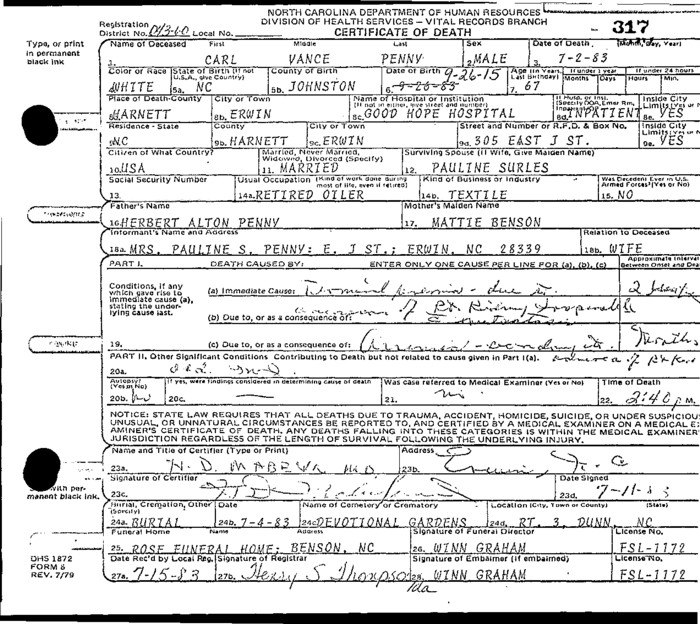 NORTH CAROLINA DEPARTMENT OF HUMAN RESOURCES
DIVISION OF HEALTH SERVICES - VITAL RECORDS BRANCH
CERTIFICATE OF DEATH
- 317
Registration District No. 043-60 Local No.
Type, or print in permanent black ink
Name of Deceased First Middle Last Sex Date of Death (Month, Day, Year)
1. CARL VANCE PENNY 2. MALE 3. 7-2-83
Color or Race State of Birth (If not U.S.A., give Country) County of Birth Date of Birth Age (in Years, Last Birthday) If under 1 year Months Days If under 24 hours Hours Min.
WHITE 5a. NC 5b. JOHNSTON 6. 9-26-83 9-26-15 7. 67
Place of Death-County City or Town Name of Hospital or Institution (If not in either, give street and number) If Hosp. or Inst. (Specify DOA, Emer Rm, Inside City Limits
HARNETT 8b. ERWIN 8c. GOOD HOPE HOSPITAL 8d. INPATIENT 8e. YES
Residence - State County City or Town Street and Number or R.F.D. & Box No. Inside City Limits
NC 9b. HARNETT 9c. ERWIN 9d. 305 EAST J ST. 9e. YES
Citizen of What Country? Married, Never Married, Widowed, Divorced (Specify) Surviving Spouse (If Wife, Give Maiden Name)
10. USA 11. MARRIED 12. PAULINE SURLES
Social Security Number Usual Occupation (Kind of work done during most of life, even if retired) Kind of Business or Industry Was Decedent Ever in U.S. Armed Forces? (Yes or No)
13. 14a. RETIRED OILER 14b. TEXTILE 15. NO
Father's Name Mother's Maiden Name
16. HERBERT ALTON PENNY 17. MATTIE BENSON
Informant's Name and Address Relation to Deceased
18a. MRS. PAULINE S. PENNY: E. J ST.; ERWIN, NC 28339 18b. WIFE
PART I. DEATH CAUSED BY: ENTER ONLY ONE CAUSE PER LINE FOR (a), (b), (c) Approximate Interval Between Onset and
Conditions, if any which gave rise to immediate cause (a), stating the underlying cause last.
(a) Immediate Cause: due to
(b) Due to, or as a consequence of: of Rt. Kidney
19. (c) Due to, or as a consequence of: Months
PART II. Other Significant Conditions Contributing to Death but not related to cause given in Part I(a).
20a.
Autopsy? (Yes or No) If yes, were findings considered in determining cause of death Was case referred to Medical Examiner (Yes or No) Time of Death
20b. No 20c. 21. no 22. 2:40 P.M.
NOTICE: STATE LAW REQUIRES THAT ALL DEATHS DUE TO TRAUMA, ACCIDENT, HOMICIDE, SUICIDE, OR UNDER SUSPICIOUS
UNUSUAL, OR UNNATURAL CIRCUMSTANCES BE REPORTED TO, AND CERTIFIED BY A MEDICAL EXAMINER ON A MEDICAL
AMINER'S CERTIFICATE OF DEATH. ANY DEATHS FALLING INTO THESE CATEGORIES IS WITHIN THE MEDICAL EXAMINER
JURISDICTION REGARDLESS OF THE LENGTH OF SURVIVAL FOLLOWING THE UNDERLYING INJURY.
Name and Title of Certifier (Type or Print) Address
23a. 23b. Erwin, N. C
Signature of Certifier Date Signed
with permanent black ink.
23c. 23d. 7-11-83
Burial, Cremation, Other (Specify) Date Name of Cemetery or Crematory Location (City, Town or County) (State)
24a. BURIAL 24b. 7-4-83 24c. DEVOTIONAL GARDENS 24d. RT. 3, DUNN, NC
Funeral Home Name Address Signature of Funeral Director License No.
25. ROSE FUNERAL HOME; BENSON, NC 26. WINN GRAHAM FSL-1172
Date Rec'd by Local Reg. Signature of Registrar Signature of Embalmer (if embalmed) License No.
27a. 7-15-83 27b. Henry S Thompson 28. WINN GRAHAM FSL-1172
DHS 1872
FORM 8
REV. 7/79